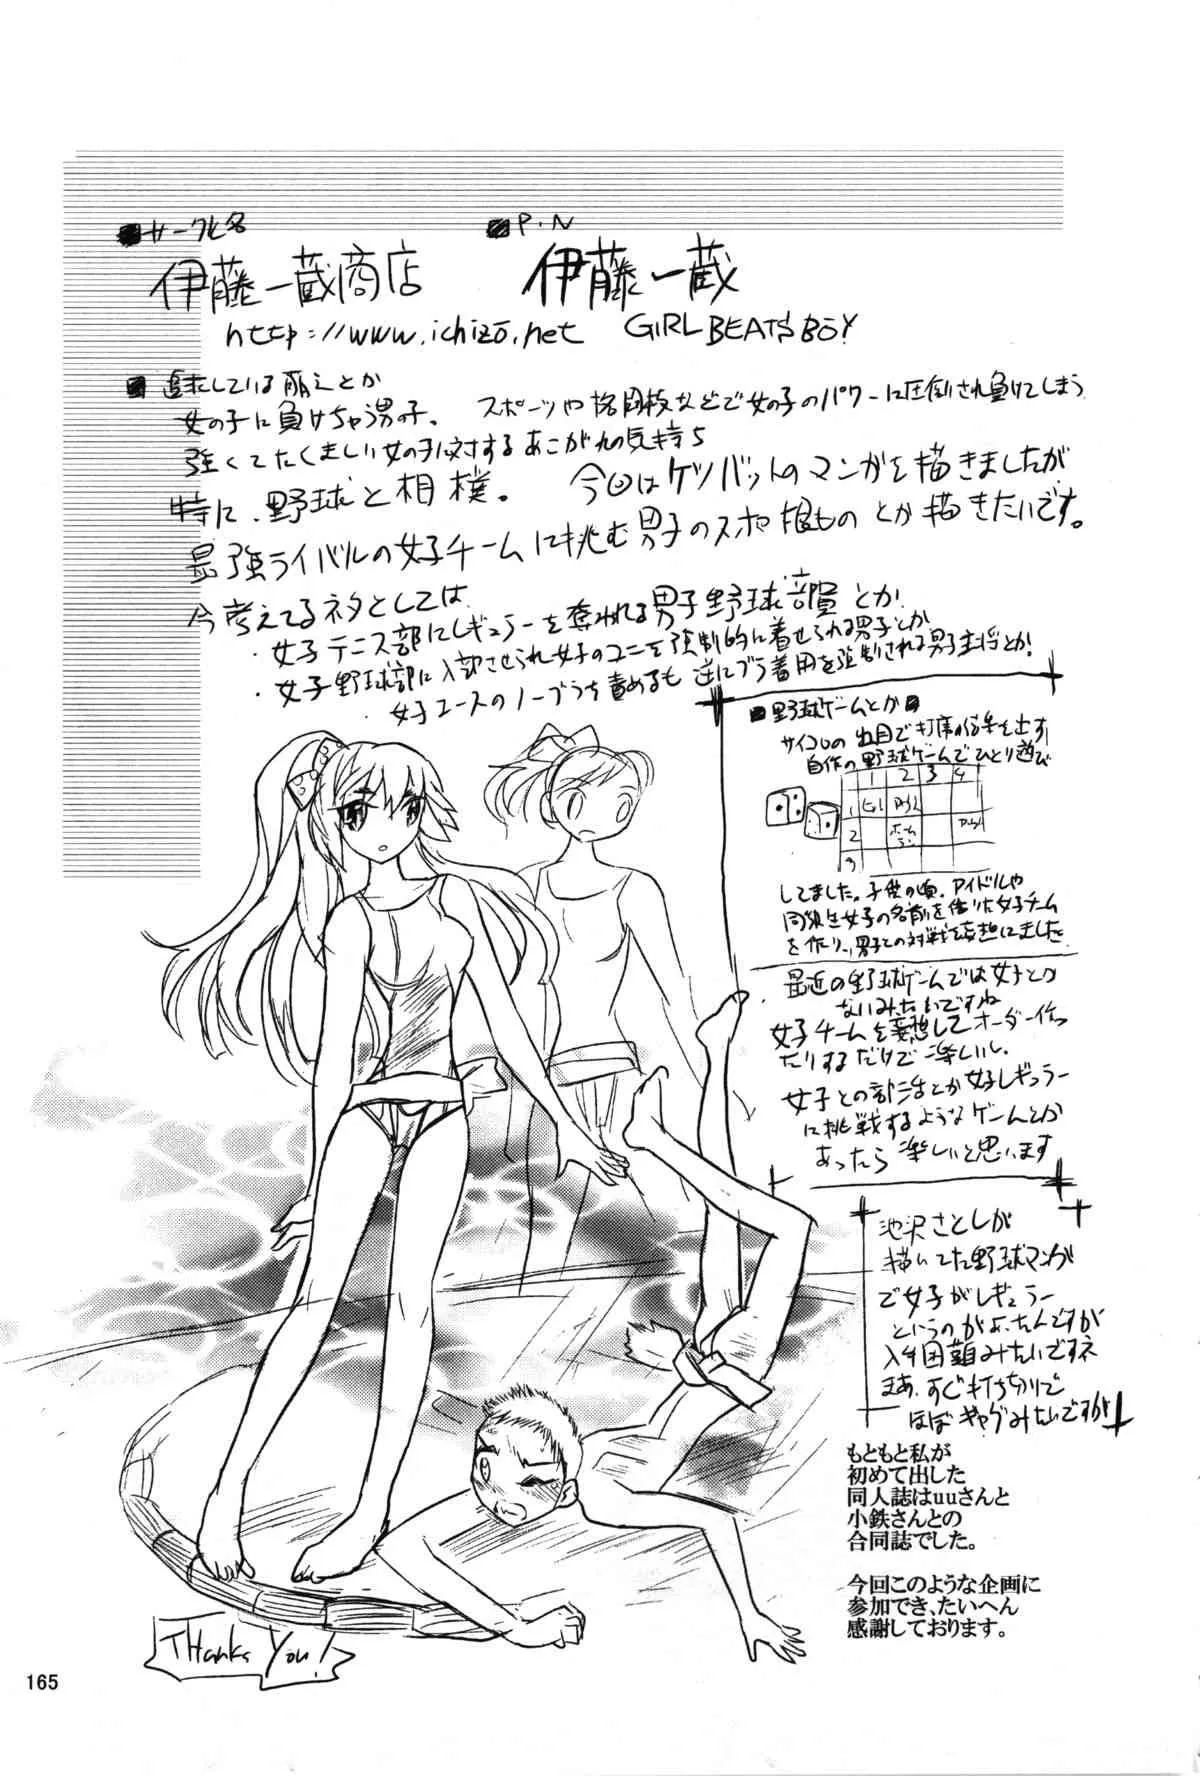 ■サークル名
伊藤一蔵商店
■P.N
伊藤一蔵
http://www.ichizo.net GIRL BEATS BOY
■追求している萌えとか
女の子に負けちゃう男子。スポーツや格闘技などで女の子のパワーに圧倒され負けてしまう
強くてたくましい女の子に対するあこがれの気持ち
特に、野球と相撲。今回はケツバットのマンガを描きましたが
最強ライバルの女子チームに挑む男子のスポ根ものとか描きたいです。
今考えてるネタとしては
・女子テニス部にレギュラーを奪われる男子野球部員とか
・女子野球部に入部させられ女子のユニを強制的に着せられる男子とか
・女子エースのノーブラを責めるも逆にブラ着用を強制される男主将とか!
■野球ゲームとか■
サイコロの出目で打席の結果を出す
自作の野球ゲームでひとり遊び
1 2 3 4
1
2 ホームラン
3
してました。子供の頃、アイドルや
同級生女子の名前を借りた女子チーム
を作り、男子との対戦を妄想にました
最近の野球ゲームでは女子とか
ないみたいですね
女子チームを妄想してオーダー作っ
たりするだけで楽しいし、
女子との部活とか女子レギュラー
に挑戦するようなゲームとか
あったら楽しいと思います
池沢さとしが
描いてた野球マンガ
で女子がレギュラー
というのがよかったんですが
入手困難みたいですネ
まあ、すぐ打ち切りで
ほぼギャグみたいですが
もともと私が
初めて出した
同人誌はuuさんと
小鉄さんとの
合同誌でした。
今回このような企画に
参加でき、たいへん
感謝しております。
THanks You!
165